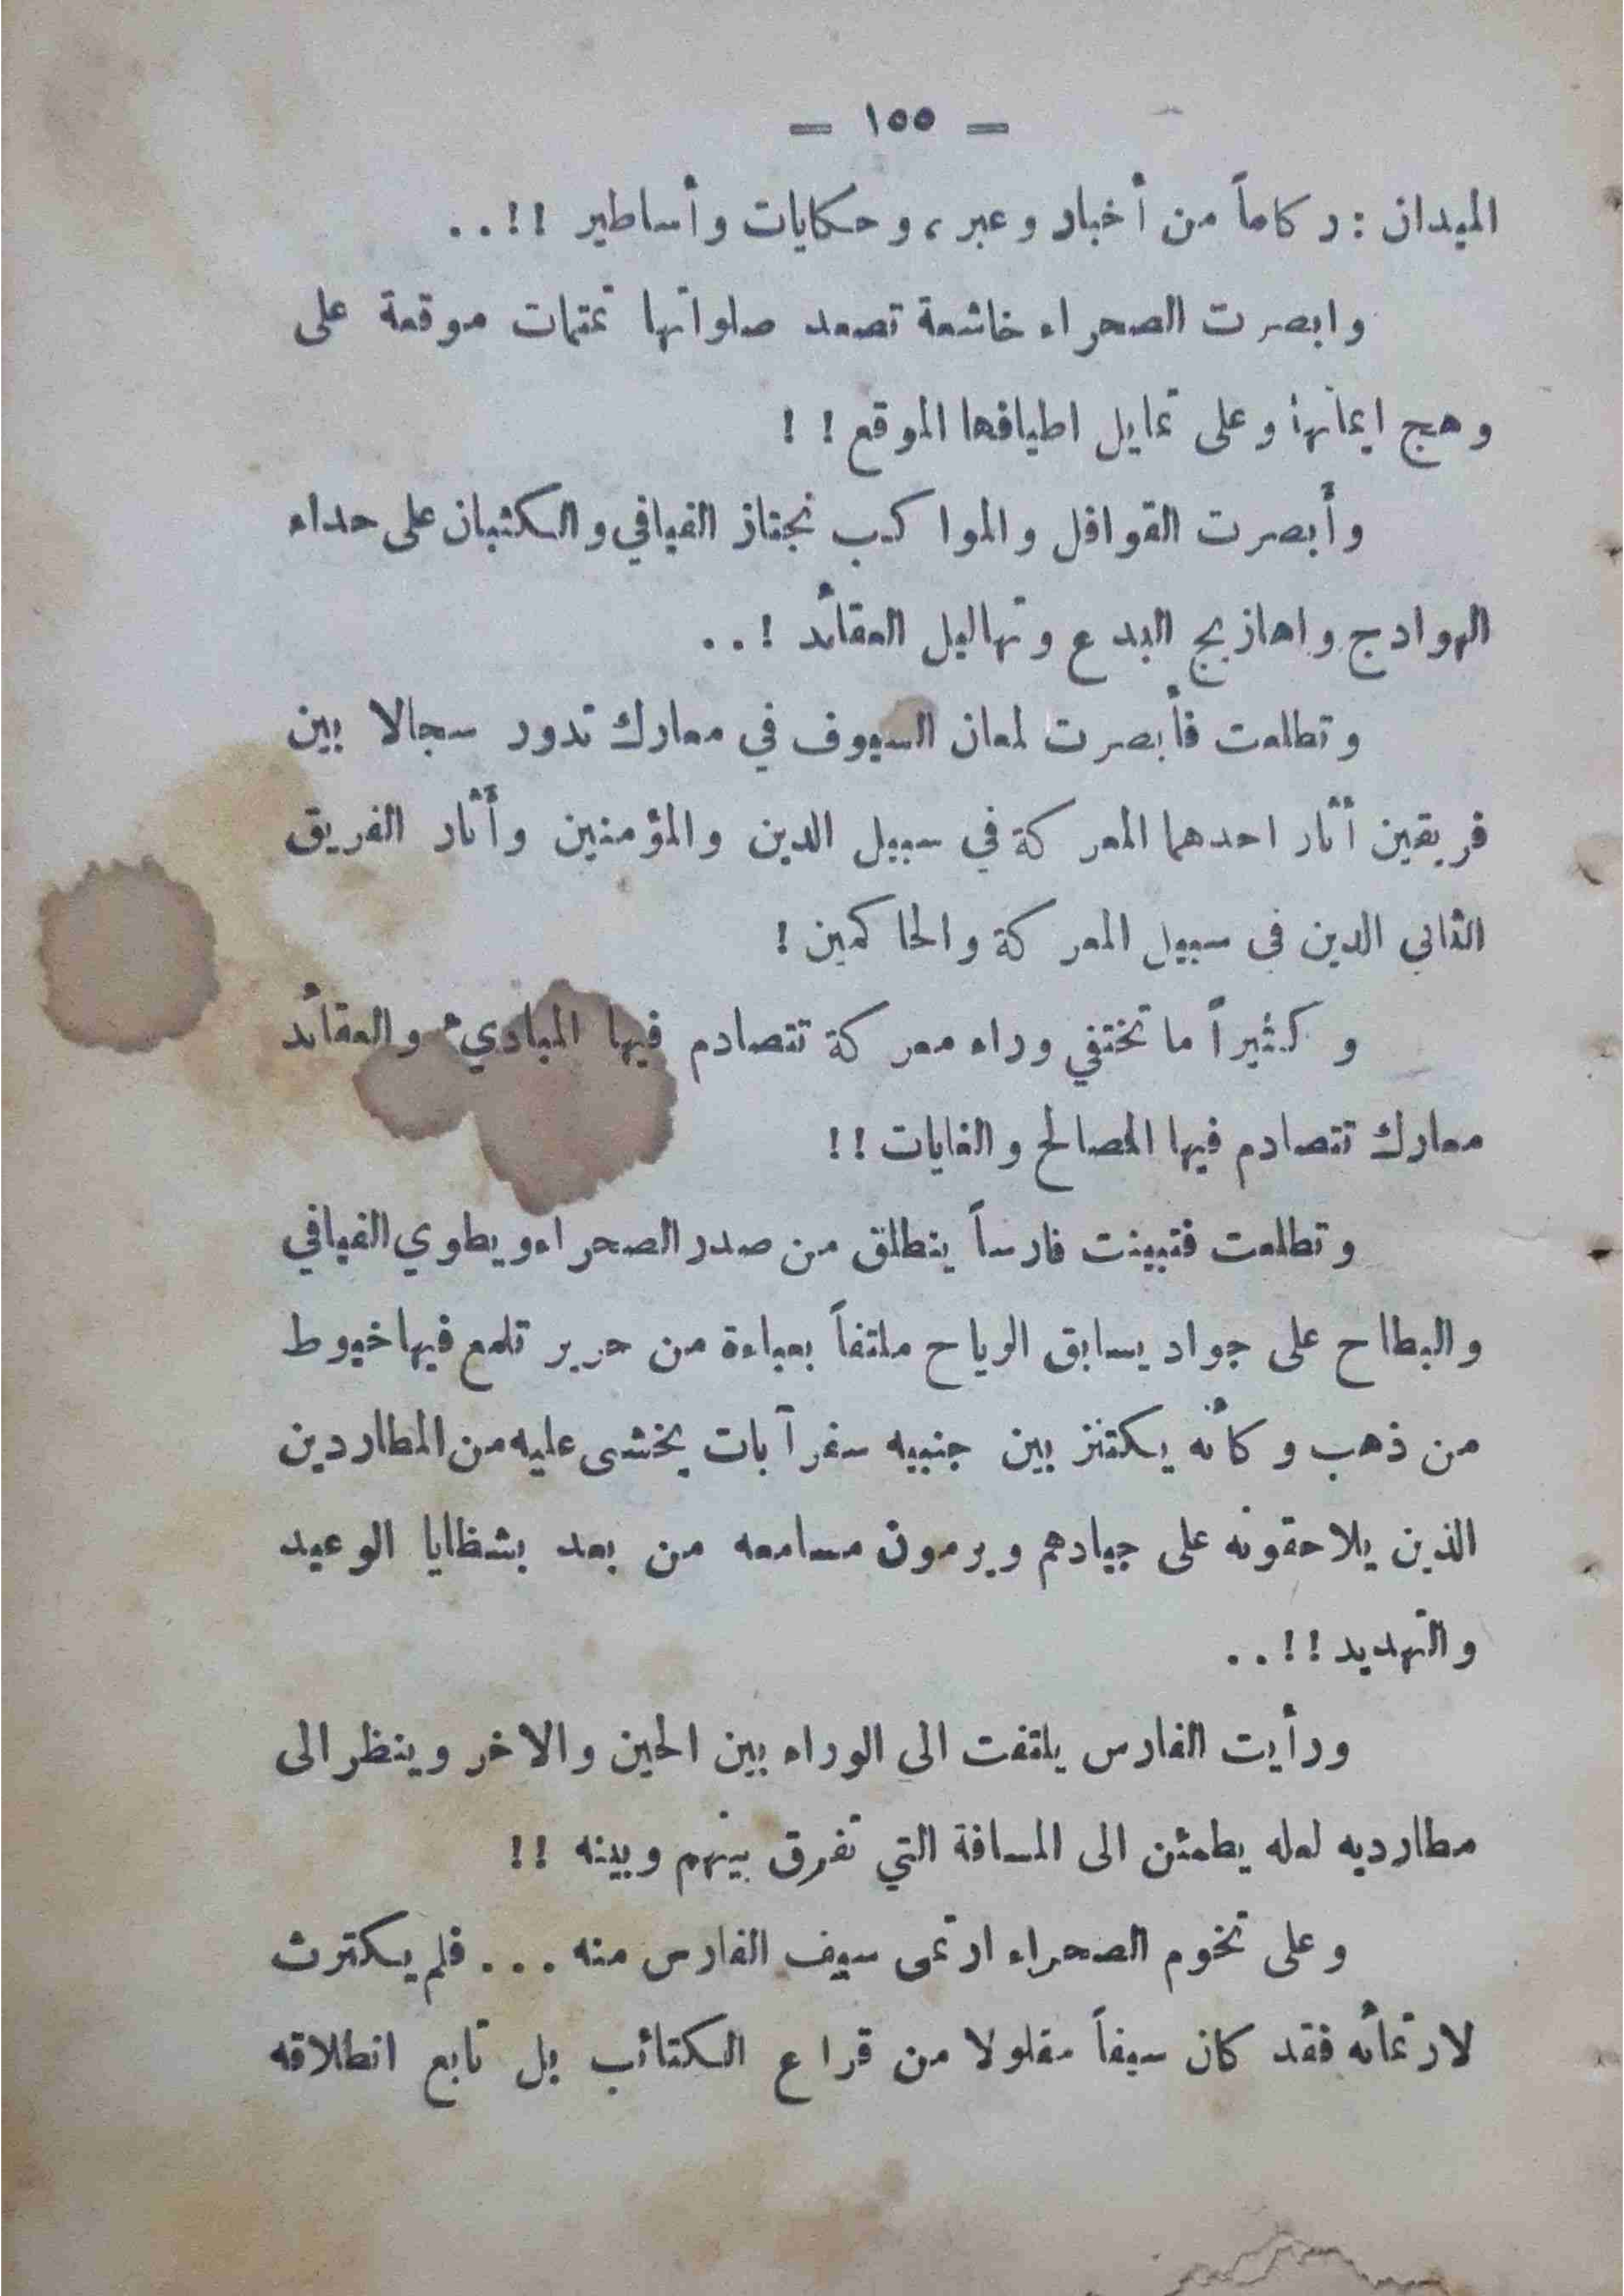 — ١٥٥ —
الميدان : ركاماً من أخبار وعبر ، وحكايات وأساطير !!..
وابصرت الصحراء خاشعة تصعد صلواتها تمتمات موقعة على
وهج ايمانها وعلى تمايل اطيافها الموقع ! !
وأبصرت القوافل والمواكب تجتاز الفيافي والكثبان على حداء
الهوادج واهازيج البدع وتهاليل العقائد !..
وتطلعت فأبصرت لمعان السيوف في معارك تدور سجالا بين
فريقين أثار احدهما المعركة في سبيل الدين والمؤمنين وأثار الفريق
الثاني الدين في سبيل المعركة والحاكمين !
وكثيراً ما تختفي وراء معركة تتصادم فيها المباديء والعقائد
معارك تتصادم فيها المصالح والغايات !!
وتطلعت فتبينت فارساً ينطلق من صدر الصحراء ويطوي الفيافي
والبطاح على جواد يسابق الرياح ملتفاً بعباءة من حرير تلمع فيها خيوط
من ذهب وكأنه يكتنز بين جنبيه سفر آيات يخشى عليه من المطاردين
الذين يلاحقونه على جيادهم ويرمون مسامعه من بعد بشظايا الوعيد
والتهديد !!..
ورأيت الفارس يلتفت الى الوراء بين الحين والاخر وينظر الى
مطارديه لعله يطمئن الى المسافة التي تفرق بينهم وبينه !!
وعلى تخوم الصحراء ارتمى سيف الفارس منه ... فلم يكترث
لارتمائه فقد كان سيفاً مفلولا من قراع الكتائب بل تابع انطلاقه